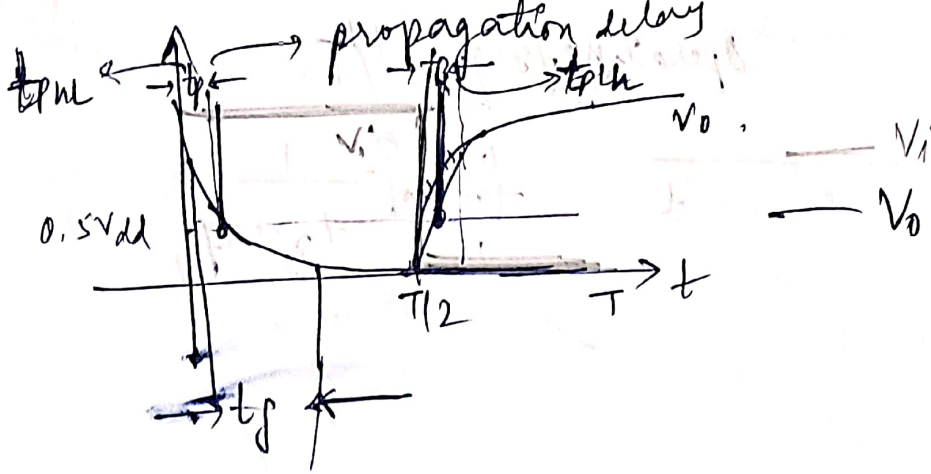 propagation delay
tPHL
tp
tp
tPLH
Vi
Vo
Vi
Vo
0.5Vdd
T/2
T
t
tf